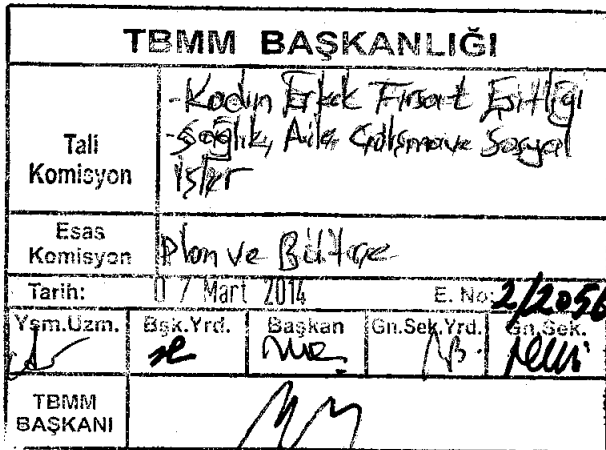 TBMM BAŞKANLIĞI
Tali Komisyon
-Kadın Erkek Fırsat Eşitliği
-Sağlık, Aile, Çalışma ve Sosyal
İşler
Esas Komisyon
Plan ve Bütçe
Tarih: 07 Mart 2014 E. No: 2/2056
Ysm.Uzm. Bşk.Yrd. Başkan Gn.Sek.Yrd. Gn.Sek.
TBMM BAŞKANI